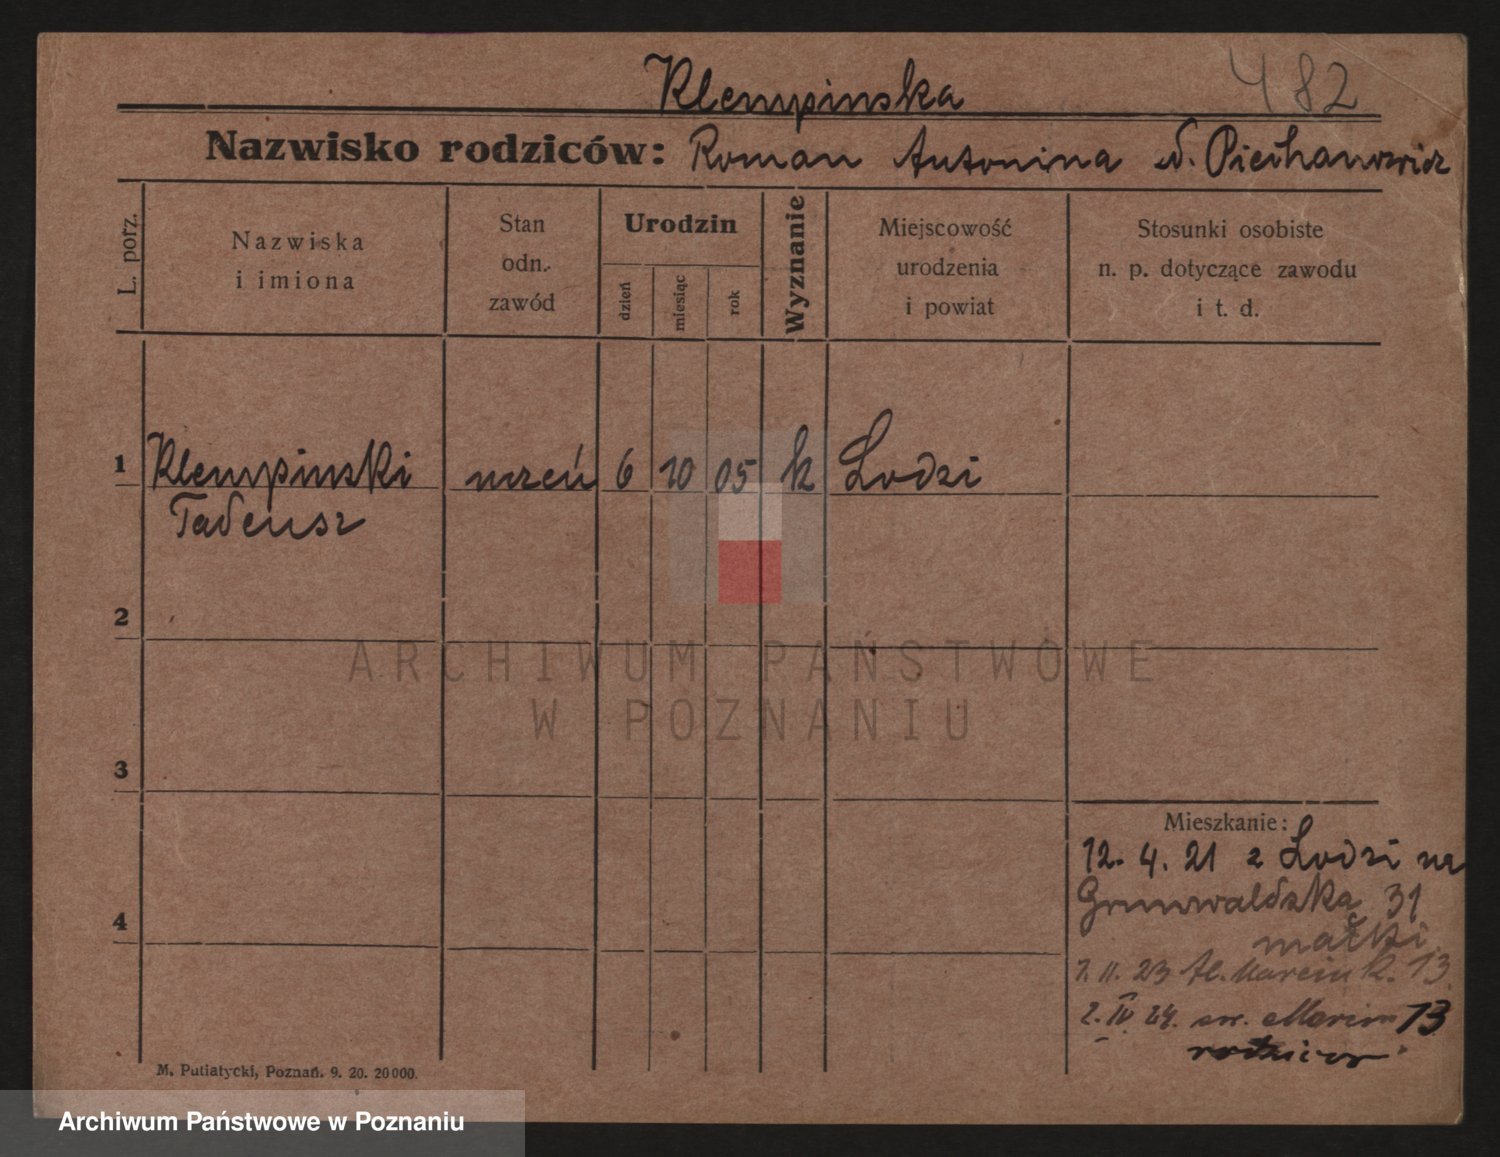 482
Klempinska
Nazwisko rodziców: Roman Antonina d. Piechanowicz
L. porz.
Nazwiska
i imiona
Stan
odn.
zawód
Urodzin
dzień
miesiąc
rok
Wyznanie
Miejscowość
urodzenia
i powiat
Stosunki osobiste
n. p. dotyczące zawodu
i t. d.
1 Klempinski uczeń 6 10 05 k Lodzi
Tadeusz
2
3
4
Mieszkanie:
12. 4. 21 z Lodzi na
Grunwaldzka 31
matki
7. 11. 23 Marcin 13
2. IV. 24. św. Marcin 13
M. Putiatycki, Poznań. 9. 20. 20000.
ARCHIWUM PAŃSTWOWE
W POZNANIU
Archiwum Państwowe w Poznaniu